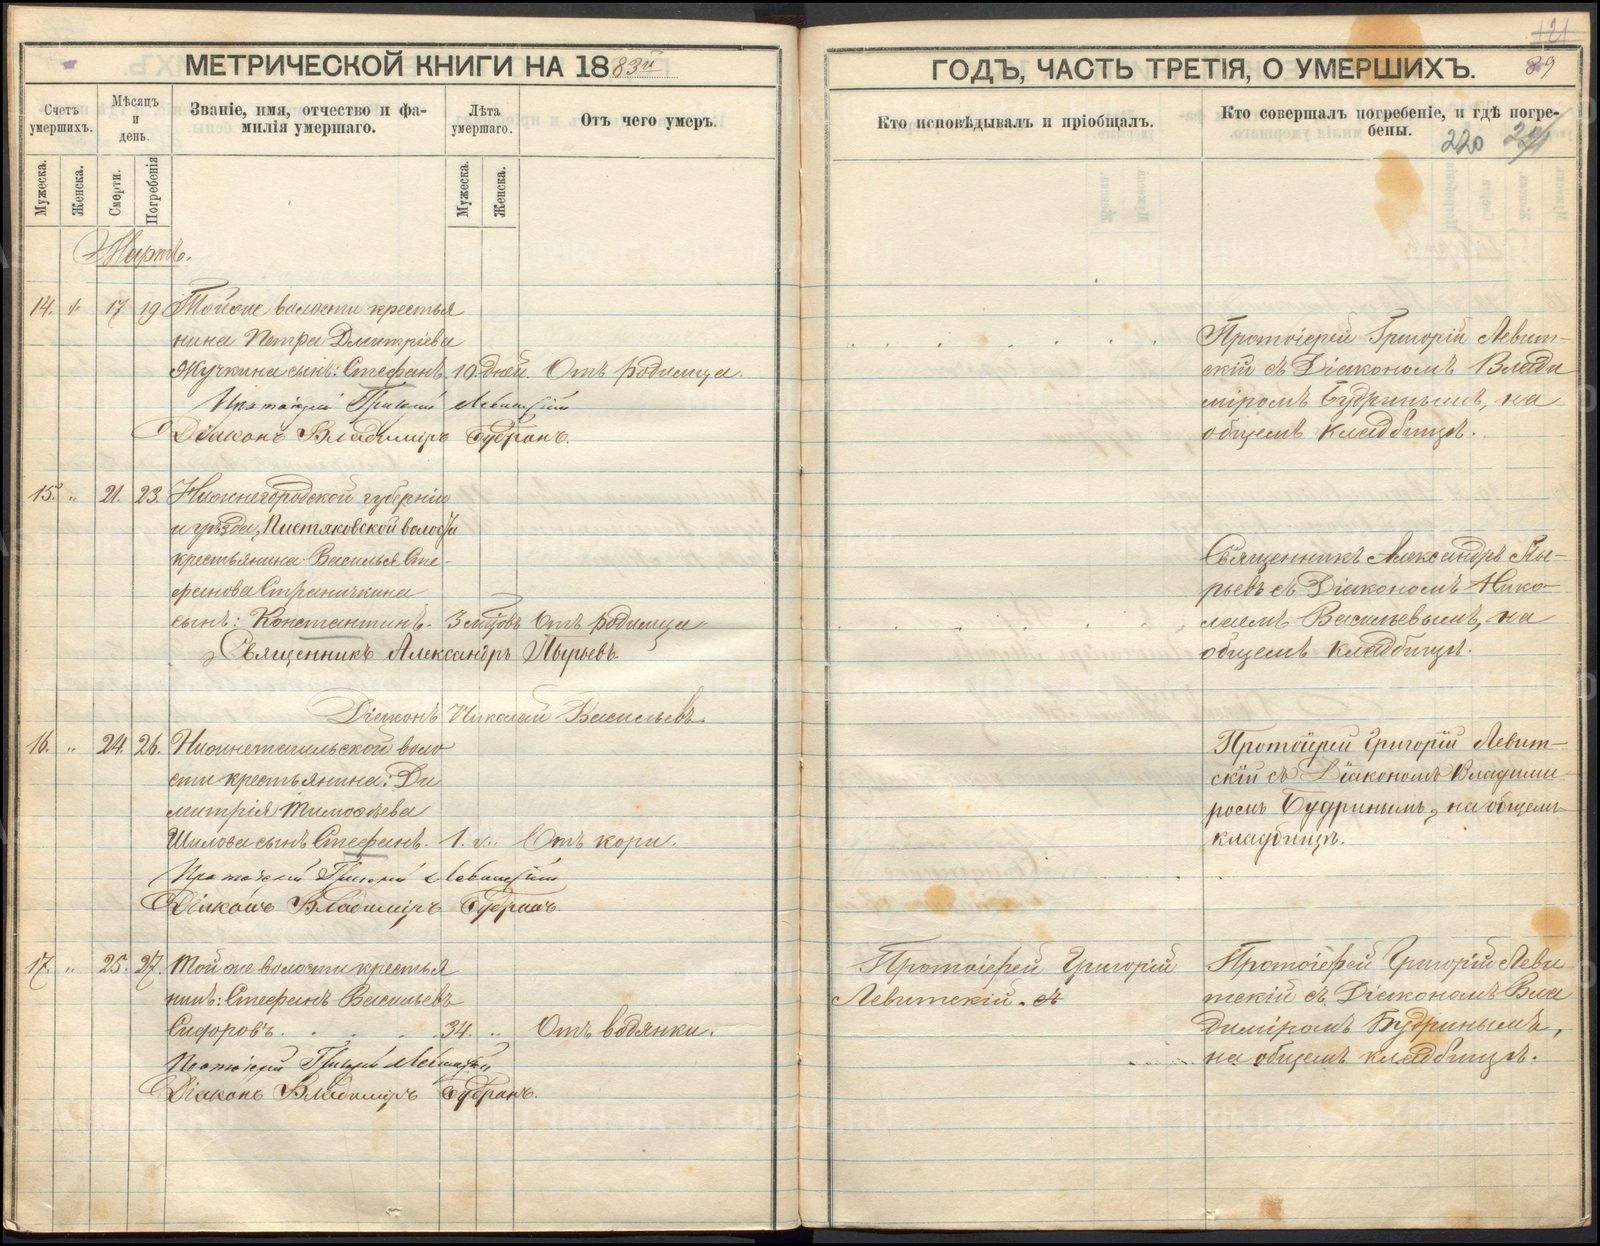 МЕТРИЧЕСКОЙ КНИГИ НА 1883й
Счетъ умершихъ.
Мѣсяцъ и день.
Званіе, имя, отчество и фа-
милія умершаго.
Лѣта умершаго.
Отъ чего умеръ.
Мужеска.
Женска.
Смерти.
Погребенія
Мужеска.
Женска.
Мартъ.
14. 17 19 Тойже волости крестья
нина Петра Дмитріева
Жучкина сынъ: Стефанъ 10 дней. Отъ родимца.
Протоіерей Григорій Левитскій
Діаконъ Владиміръ Будринъ.
15. " 21. 23. Нижнегородской губерніи
и уѣзда, Пистяковской волости
крестьянина Василья Сте-
фанова Страничкина
сынъ: Константинъ. 3 мцовъ Отъ родимца
Священникъ Александръ Пырьевъ.
Діаконъ Николай Васильевъ.
16. " 24. 26. Нижнетагильской воло
сти крестьянина: Ди
митрія Тимоѳѣева
Шилова сынъ Стефанъ. 1. г. Отъ кори.
Протоіерей Григорій Левитскій
Діаконъ Владиміръ Будринъ
17. " 25. 27. Тойже волости крестья
нинъ: Стефанъ Васильевъ
Сидоровъ. . . . . 34. " Отъ водянки.
Протоіерей Григорій Левитскій
Діаконъ Владиміръ Будринъ.
121
ГОДЪ, ЧАСТЬ ТРЕТІЯ, О УМЕРШИХЪ.
89
Кто исповѣдывалъ и пріобщалъ.
Кто совершалъ погребеніе, и гдѣ погре-
бены.
220
Протоіерей Григорій Левит-
скій съ Діакономъ Влади
міромъ Будринымъ, на
общемъ кладбищѣ.
Священникъ Александръ Пы-
рьевъ съ Діакономъ Нико-
лаемъ Васильевымъ, на
общемъ кладбищѣ.
Протоіерей Григорій Левит-
скій съ Діакономъ Владими-
ромъ Будринымъ, на общемъ
кладбищѣ.
Протоіерей Григорій
Левитскій. съ
Протоіерей Григорій Леви
тскій съ Діакономъ Вла
диміромъ Будринымъ,
на общемъ кладбищѣ.